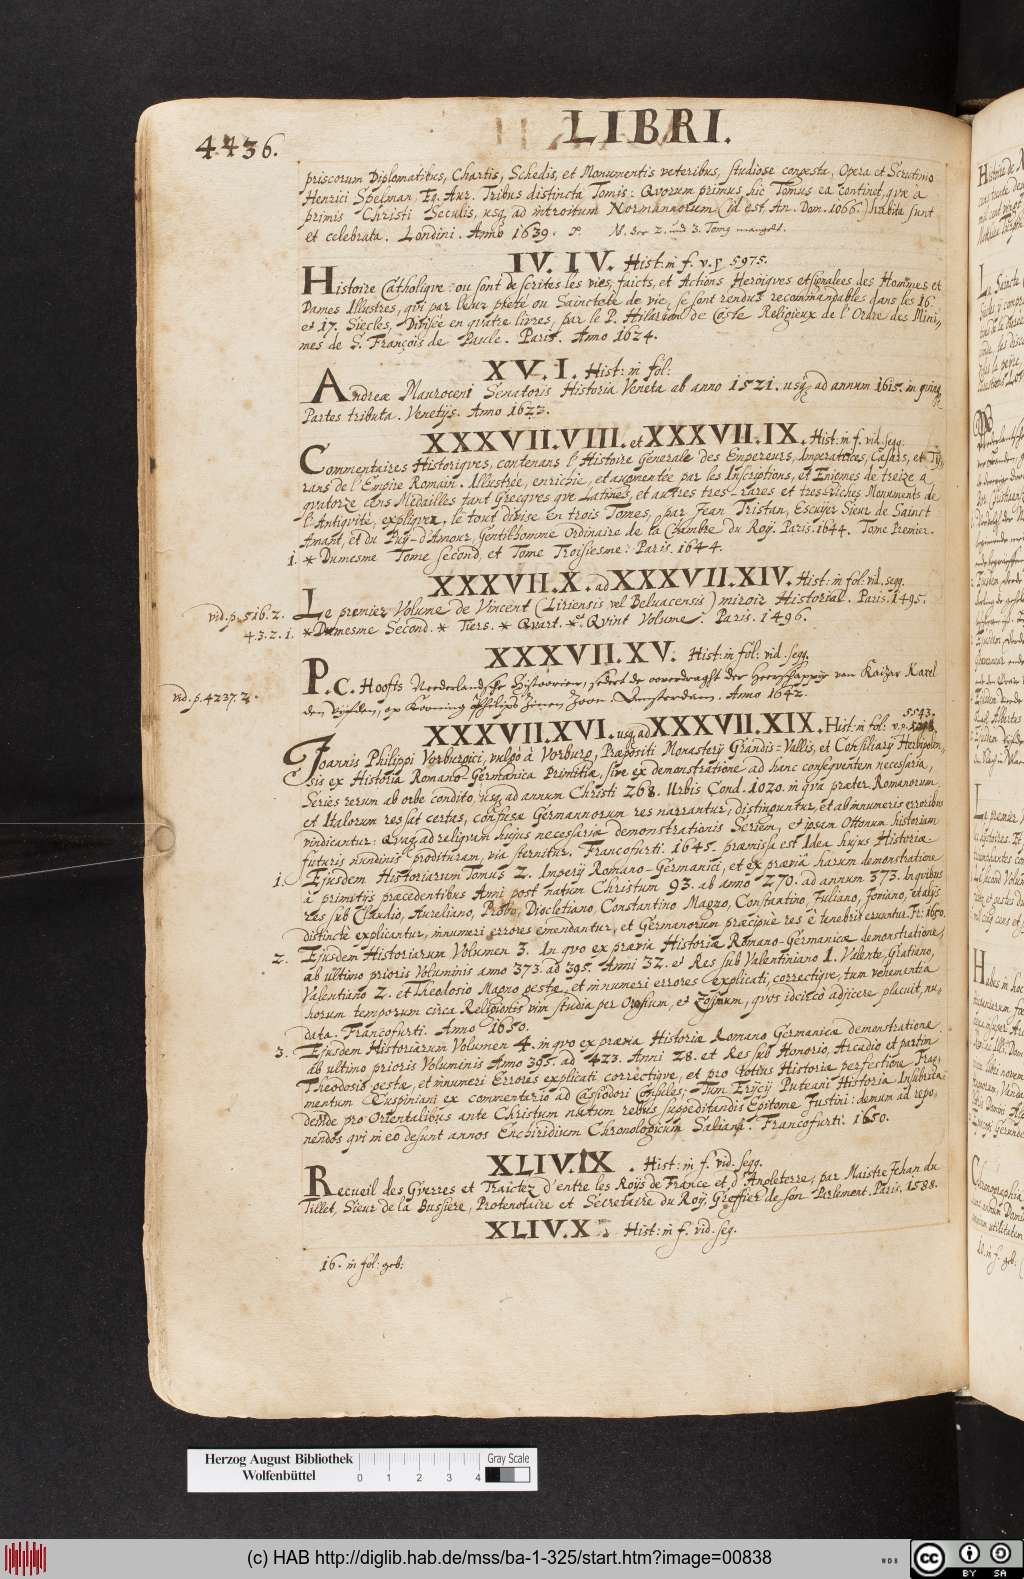 4436.
LIBRI.
priscorum Diplomatibus, Chartis, Schedis, et Monumentis veteribus, studiose congesta, Opera et Scrutinio
Henrici Spelman, Eq. Aur. Tribus distincta Tomis: Qvorum primus hic Tomus ea continet, qvæ à
primis Christi Seculis, usq ad introitum Normannorum (id est An. Dom. 1066.) habita sunt
et celebrata. Londini. Anno 1639. N. der 2. und 3. Tomg mangelt.
IV. IV. Hist: in f. v. p 5975.
Histoire Catholiqve: ou sont descrites les vies, faicts, et Actions Heroiqves et signalees des Hommes et
Dames Illustres, qui par leur pieté ou Sainctete de vie, se sont rendus recommandables dans les 16.
et 17. Siecles, Divisée en qvatre livres, par le P. Hilarion de Coste Religieux de l'Ordre des Mini-
mes de S. François de Paule. Paris. Anno 1624.
XV. I. Hist: in fol:
Andreæ Mauroceni Senatoris Historia Veneta ab anno 1521. usq ad annum 1615. in
Partes tributa. Venetijs. Anno 1623.
XXXVII. VIII. et XXXVII. IX. Hist: in f. vid. seqq.
Commentaires Historiqves, contenans l'Histoire Generale des Empereurs, Imperatrices, Cæsars, et Ty-
rans de l'Empire Romain. Illustrée, enrichie, et augmentée par les Inscriptions, et Enigmes de treize a
qvatorze cens Medailles tant Grecqves qve Latines, et autres tres-rares et tres-riches Monuments de
l'Antiqvité, expliqvez, le tout divise en trois Tomes, par Jean Tristan, Escuyer Sieur de Sainct
Amant, et du Puy-d'Amour, Gentilhomme Ordinaire de la Chambre du Roy. Paris. 1644. Tome Premier.
1. * Dumesme Tome second, et Tome Troisiesme: Paris. 1644.
XXXVII. X. ad XXXVII. XIV. Hist: in fol: vid. seqq.
vid. p. 516. 2. Le premier Volume de Vincent (Liriensis vel Beluacensis) miroir Historial. Paris. 1495.
43. 2. 1. * Dumesme Second. * Tiers. * Qvart. * Qvint Volume. Paris. 1496.
XXXVII. XV. Hist: in fol: vid. seqq.
vid. p. 4237. 2. P. C. Hoofts Neederlandsche Histoorien, seedert de ooverdraght der Heerschappije van Kaizar Karel
den Vijfden, op Kooning Philips zijnen zoon. Amsterdam. Anno 1642.
5543.
XXXVII. XVI. usq ad XXXVII. XIX. Hist: in fol: v. p.
Joannis Philippi Vorburgici, vulgo à Vorburg, Præpositi Monasterij Grandis-Vallis, et Consiliarij Herbipolen-
sis ex Historia Romano-Germanica Primitia, sive ex demonstratione ad hanc conseqventem necessaria,
Series rerum ab orbe condito, usq ad annum Christi 268. Urbis Cond. 1020. in qva præter Romanorum
et Italorum res sat certas, confusæ Germannorum res narrantur, distinguuntur, et ab innumeris erroribus
vindicantur: Qvaq ad reliqvam hujus necessariæ demonstrationis Seriem, et ipsam Ottonum historiam
futuris nundinis prodituram, via sternitur. Francofurti. 1645. præmissa est Idea hujus Historiæ
1. Ejusdem Historiarum Tomus 2. Imperij Romano-Germanici, et ex præviâ harum demonstratione
à primitijs præcedentibus Anni post natum Christum 93. ab anno 270. ad annum 373. In qvibus
res sub Claudio, Aureliano, Probo, Diocletiano, Constantino Magno, Constantino, Juliano, Joviano, et alijs
distincte explicantur, innumeri errores emendantur, et Germanorum præcipuè res è tenebris eruuntur. Fr: 1650.
2. Ejusdem Historiarum Volumen 3. In qvo ex prævia Historiæ Romano-Germanicæ demonstratione
ab ultimo prioris Voluminis anno 373. ad 395. Anni 32. et Res sub Valentiniano I. Valente, Gratiano,
Valentiano 2. et Theodosio Magno gestæ, et innumeri errores explicati, correctiqve, tum vehementia
horum temporum circa Religionis vim studia per Orosium, et Zosimum, qvos idcirco adjicere placuit, nu-
data. Francofurti. Anno 1650.
3. Ejusdem Historiarum Volumen 4. in qvo ex prævia Historiæ Romano Germanicæ demonstratione
ab ultimo prioris Voluminis Anno 395. ad 423. Anni 28. et Res sub Honorio, Arcadio et partim
Theodosio gestæ, et innumeri Errores explicati correctiqve, et pro totius Historiæ perfectione Frag-
mentum Cuspiniani ex commentario ad Cassiodori Consules; Tum Erycij Puteani Historia Insubrica:
deinde pro Orientalibus ante Christum natum rebus suppeditandis Epitome Justini: demum ad repo-
nendos qvi in eo desunt annos Enchiridium Chronologicum Saliani. Francofurti. 1650.
XLIV. IX. Hist: in f. vid. seqq.
Recueil des Gverres et Traictez d'entre les Roijs de France et d'Angleterre, par Maistre Jehan du
Tillet, Sieur de la Bussiere, Protenotaire et Secretaire du Roy, Greffier de son Parlement. Paris. 1588.
XLIV. X Hist: in f. vid. seq.
16. in fol: geb:
Herzog August Bibliothek
Wolfenbüttel
0 1 2 3 4
Gray Scale
(c) HAB http://diglib.hab.de/mss/ba-1-325/start.htm?image=00838
WDB
cc BY SA